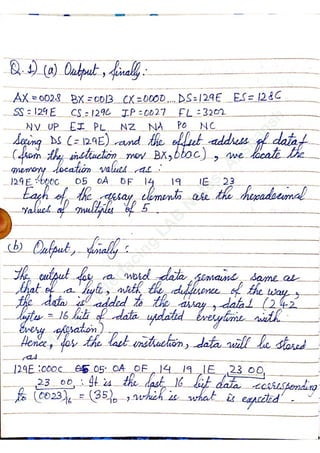 Q.1) (a) Output, finally:
AX=0028 BX=0013 CX=0000 DS=129E ES=128C
SS=129E CS=129C IP=0027 FL=3202
NV UP EI PL NZ NA PO NC
Seeing DS (=129E) and the offset address of data
(from the instruction mov BX, 000C), we locate the
memory location values as:
129E:000C 05 0A 0F 14 19 1E 23
Each of the array elements are the hexadecimal
values of multiples of 5.
(b) Output, finally:
The output for a word data remains same as
that of a byte, with the difference of the way,
the data is added to the array, data1 (2
bytes = 16 bits of data updated everytime with
every operation)
Hence, for the last instruction, data will be stored
as
129E:000C 05 0A 0F 14 19 1E, 23 00,
23 00, : It is the last 16 bit data corresponding
to (0023)16 = (35)10, which is what is expected.